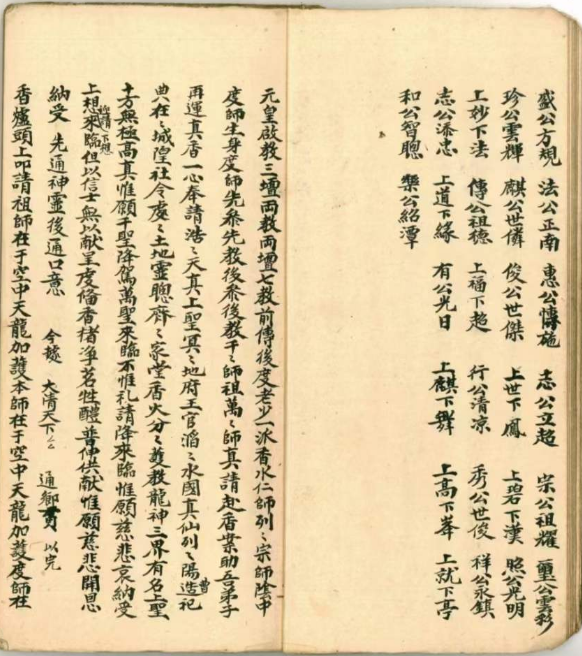 盛公方規 法公正南 惠公愽施 志公立超 宗公祖耀 璽公雲彩
珍公雲輝 麒公世儔 俊公世傑 上世下鳳 上碧下漢 照公光明
上妙下法 傳公祖德 上福下超 行公清凉 秀公世俊 祥公永鎮
志公添忠 上道下緣 有公光日 上麒下舞 上高下峯 上就下亭
和公智聰 樂公紹潭
元皇啟教三壇両教両壇七教前傳後度老少一派香水仁師列〻宗師陰中
度師生身度師先叅先教後叅後教千〻師祖萬〻師真請赴香案助吾弟子
再運真香一心奉請浩〻天真上聖冥〻地府王官滔〻水國真仙列〻陽造曹祀
典在〻城隍社令處〻土地靈聰齊〻家堂香火分〻䕶教龍神三界有名上聖
十方無極高真惟願千聖降駕萬聖来臨不惟礼請降来臨惟願慈悲哀納受
上想来臨但以信士無以献呈虔俻香楮凈茗牲醴普伸供献惟願慈悲開恩
納受 先通神靈後通口意 今據 大清天下厶 通鄉貫 以完
香爐頭上叩請祖師在于空中天龍加䕶本師在于空中天龍加䕶度師在